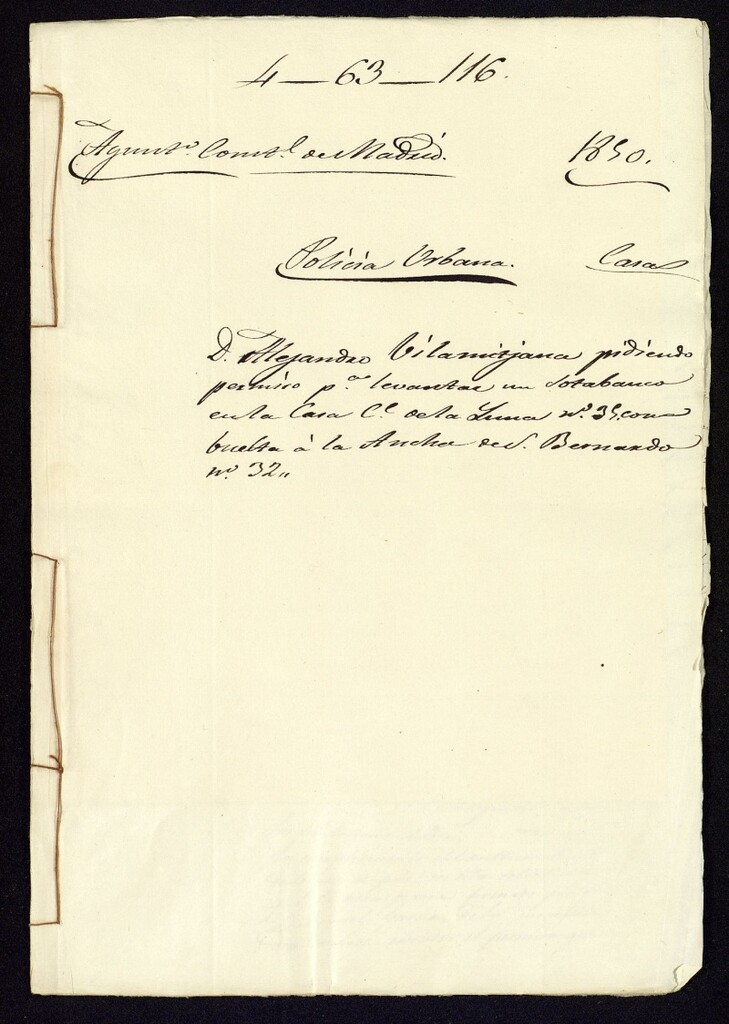 4—63—116.
Ayunto. Constl. de Madrid. 1850.
Policia Urbana. Casas
D. Alejandro Vilamitjana pidiendo
permiso pa. levantar un sotabanco
en la Casa Ce. de la Luna nº. 35, con
buelta á la Ancha de S. Bernardo
nº. 32,,